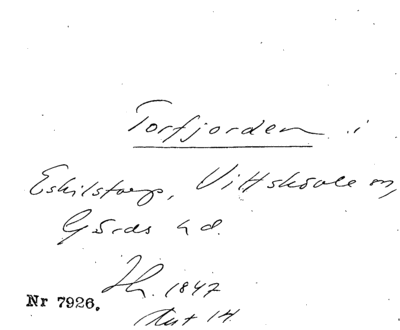 Torfjorden i
Eskilstorp, Vittskövle sn,
Gärds hd.
1847
Nr 7926.
Akt 14